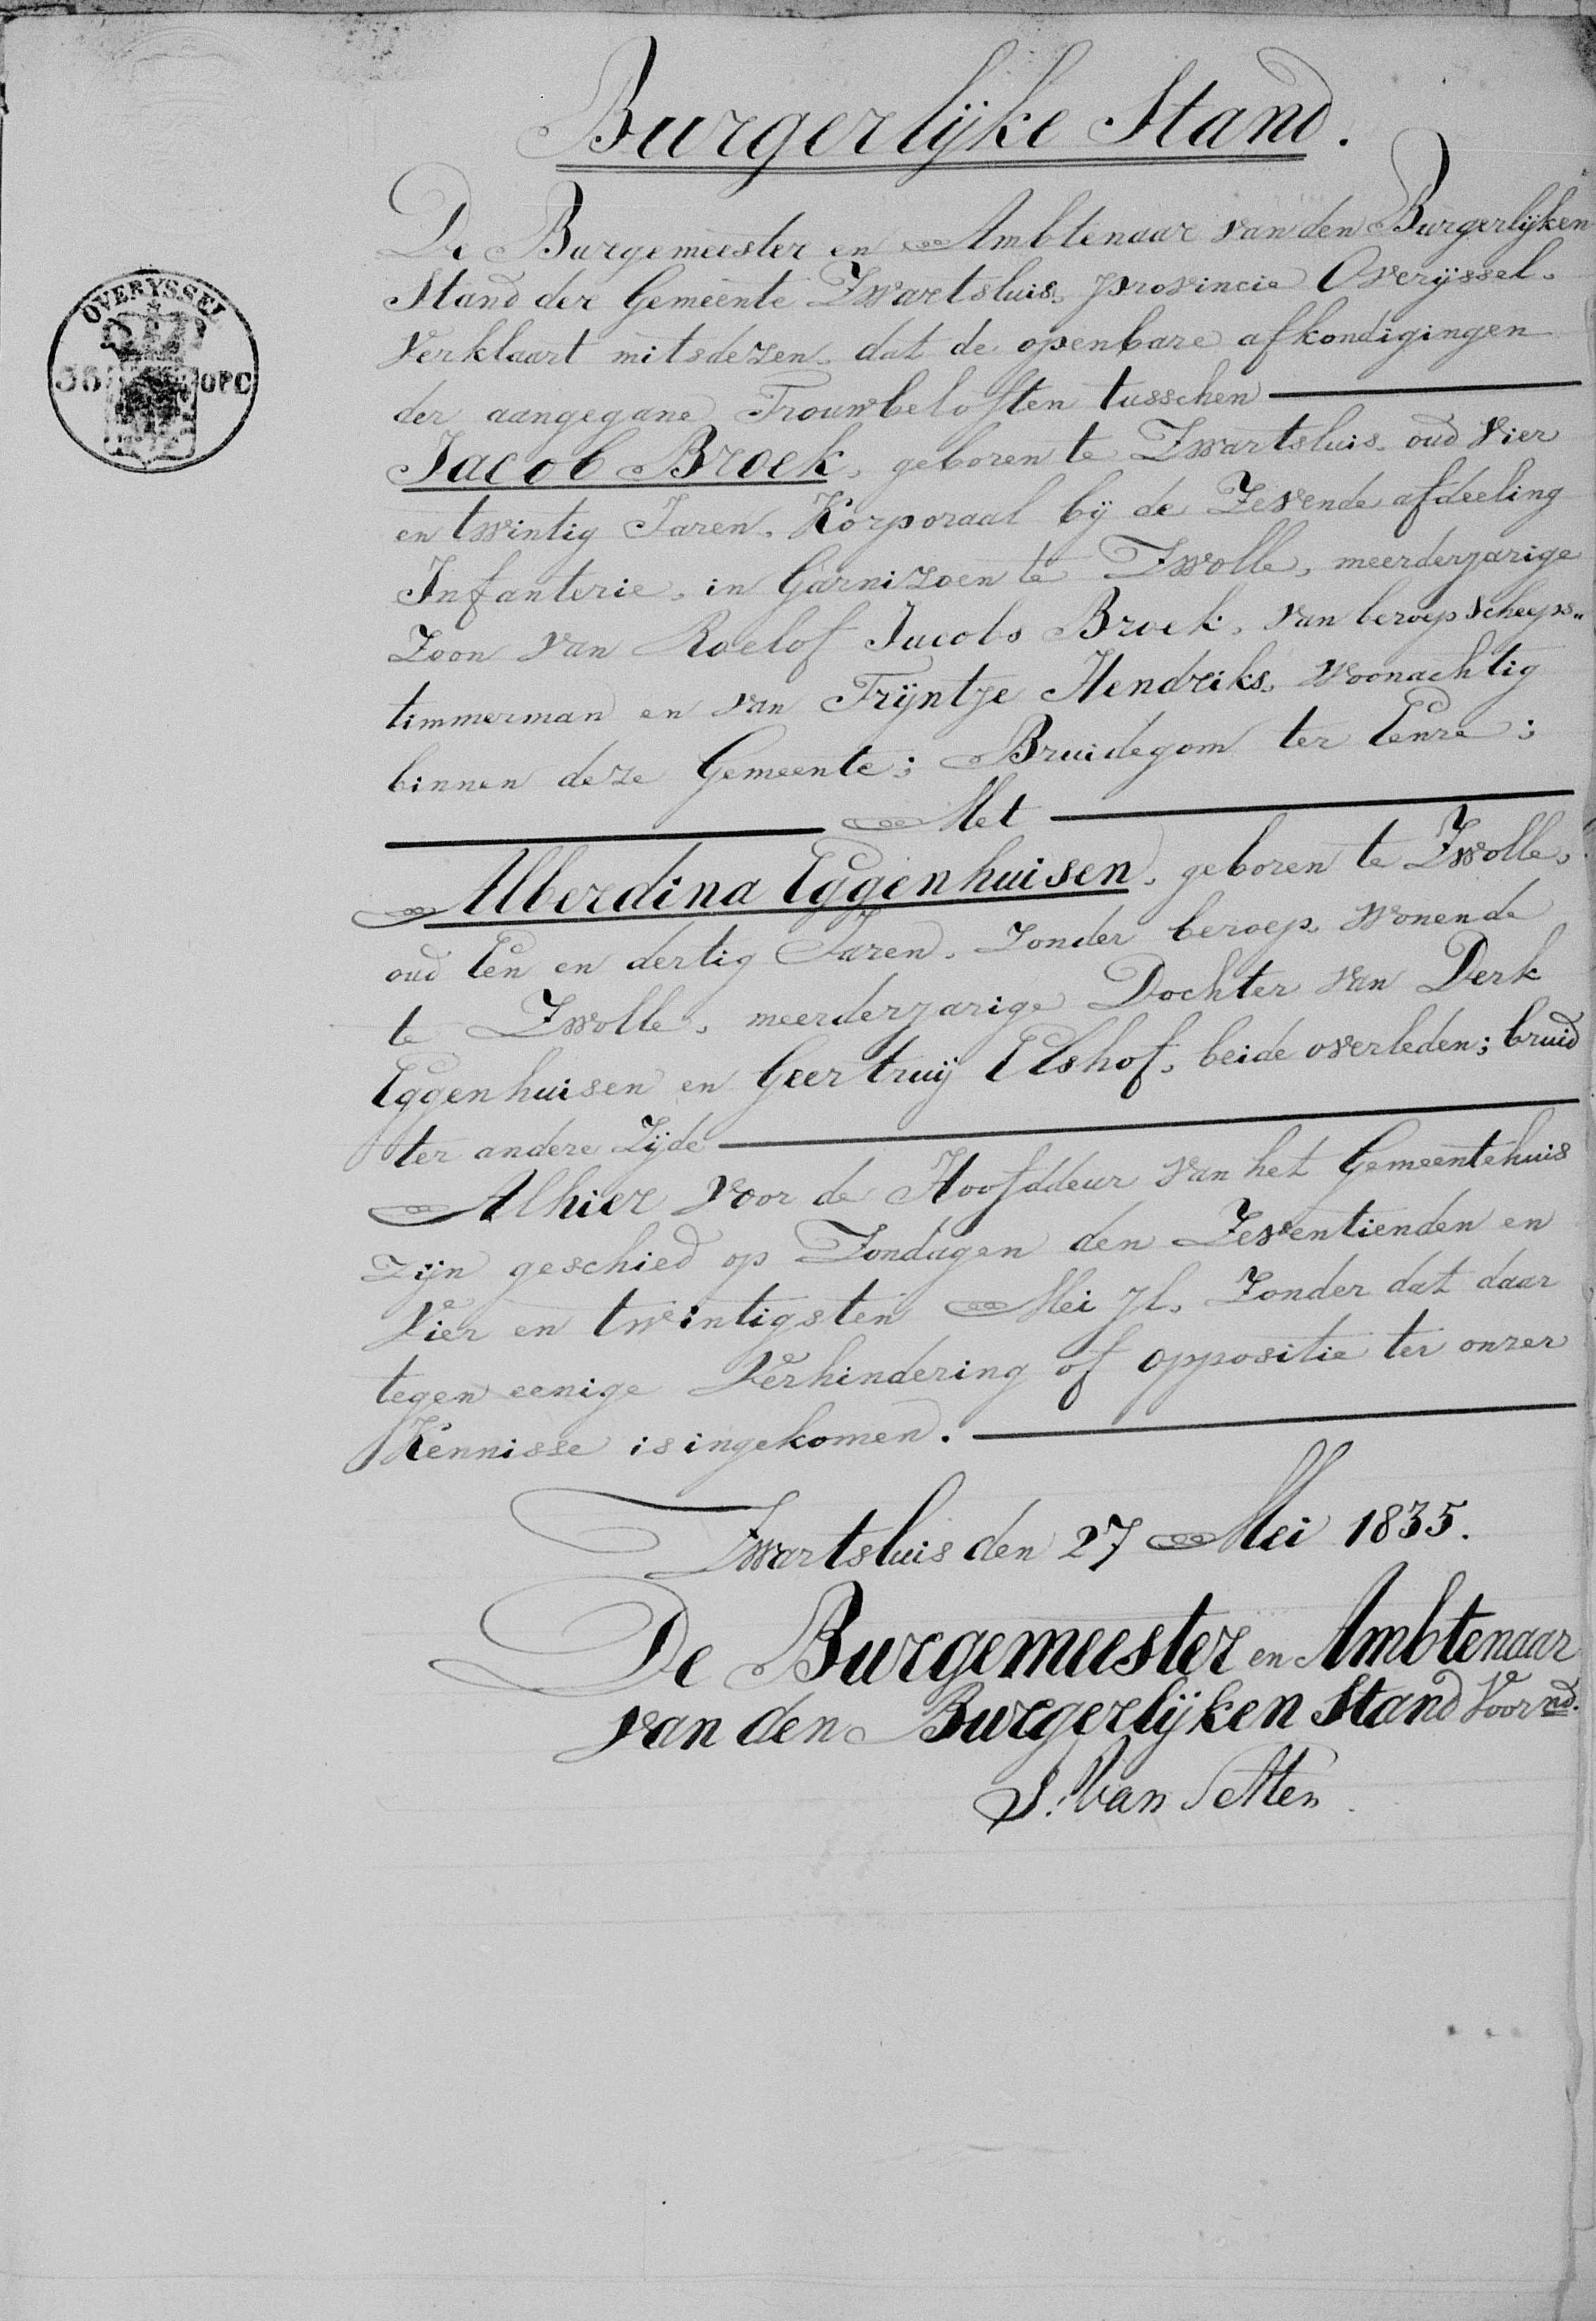 Burgerlijke Stand.
De Burgemeester en Ambtenaar van den Burgerlijken
Stand der Gemeente Zwartsluis, provincie Overijssel.
Verklaart mitsdezen, dat de openbare afkondigingen
der aangegane Trouwbeloften tusschen
Jacob Broek, geboren te Zwartsluis, oud Vier
en twintig Jaren, Korporaal bij de Zevende afdeeling
Infanterie, in Garnizoen te Zwolle, meerderjarige
Zoon van Roelof Jacobs Broek, van beroep scheeps„
timmerman en van Trijntje Hendriks, woonachtig
binnen deze Gemeente; Bruidegom ter Eenre;
Met
Alberdina Eggenhuisen, geboren te Zwolle,
oud Een en dertig Jaren, Zonder beroep, wonende
te Zwolle, meerderjarige Dochter van Derk
Eggenhuisen en Geertruij Elshof, beide overleden; bruid
ter andere Zijde
Alhier voor de Hoofddeur van het Gemeentehuis
zijn geschied op Zondagen den Zeventienden en
Vier en twintigsten Mei jl. Zonder dat daar
tegen eenige Verhindering of oppositie ter onzer
Kennisse is ingekomen.
Zwartsluis den 27 Mei 1835.
De Burgemeester en Ambtenaar
van den Burgerlijken Stand Voornd.
van Setten
OVERYSSEL
OPC